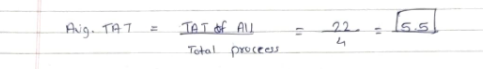 Avg. TAT = TAT of All / Total process = 22 / 4 = 5.5